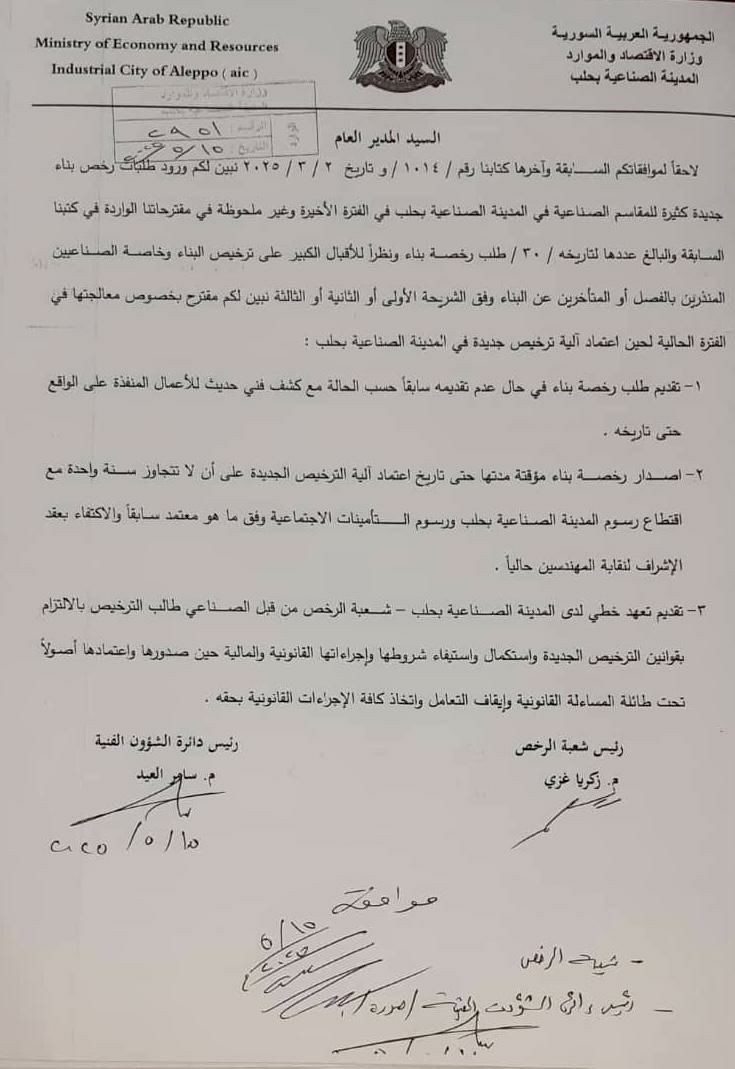 Syrian Arab Republic
Ministry of Economy and Resources
Industrial City of Aleppo ( aic )
الجمهورية العربية السورية
وزارة الاقتصاد والموارد
المدينة الصناعية بحلب
وزارة الاقتصاد والموارد
الرقم : ٢٩٥١
التاريخ : ١٥ / ٥
السيد المدير العام
لاحقاً لموافقاتكم السابقة وآخرها كتابنا رقم / ١٠١٤ / و تاريخ ٢ / ٣ / ٢٠٢٥ نبين لكم ورود طلبات رخص بناء
جديدة كثيرة للمقاسم الصناعية في المدينة الصناعية بحلب في الفترة الأخيرة وغير ملحوظة في مقترحاتنا الواردة في كتبنا
السابقة والبالغ عددها لتاريخه / ٣٠ / طلب رخصة بناء ونظراً للأقبال الكبير على ترخيص البناء وخاصة الصناعيين
المنذرين بالفصل أو المتأخرين عن البناء وفق الشريحة الأولى أو الثانية أو الثالثة نبين لكم مقترح بخصوص معالجتها في
الفترة الحالية لحين اعتماد آلية ترخيص جديدة في المدينة الصناعية بحلب :
١- تقديم طلب رخصة بناء في حال عدم تقديمه سابقاً حسب الحالة مع كشف فني حديث للأعمال المنفذة على الواقع
حتى تاريخه .
٢- اصدار رخصة بناء مؤقتة مدتها حتى تاريخ اعتماد آلية الترخيص الجديدة على أن لا تتجاوز سنة واحدة مع
اقتطاع رسوم المدينة الصناعية بحلب ورسوم التأمينات الاجتماعية وفق ما هو معتمد سابقاً والاكتفاء بعقد
الإشراف لنقابة المهندسين حالياً .
٣- تقديم تعهد خطي لدى المدينة الصناعية بحلب – شعبة الرخص من قبل الصناعي طالب الترخيص بالالتزام
بقوانين الترخيص الجديدة واستكمال واستيفاء شروطها وإجراءاتها القانونية والمالية حين صدورها واعتمادها أصولاً
تحت طائلة المساءلة القانونية وإيقاف التعامل واتخاذ كافة الإجراءات القانونية بحقه .
رئيس شعبة الرخص
م. زكريا غزي
رئيس دائرة الشؤون الفنية
م. سامر العيد
٢٠٢٥ / ٥ / ١٥
موافقة
١٥ / ٥
٢٠٢٥
- شعبة الرخص
- رئيس دائرة الشؤون الفنية / صورة /